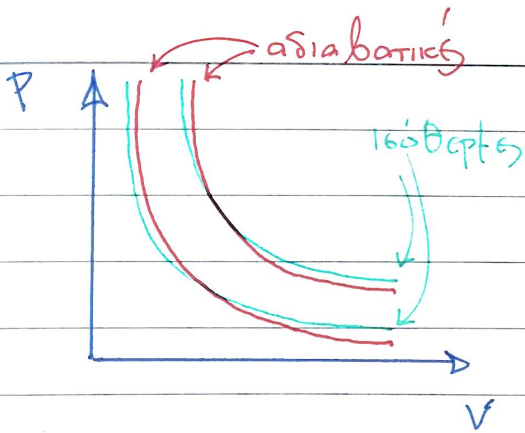 αδιαβατικές
P
ισόθερμες
V